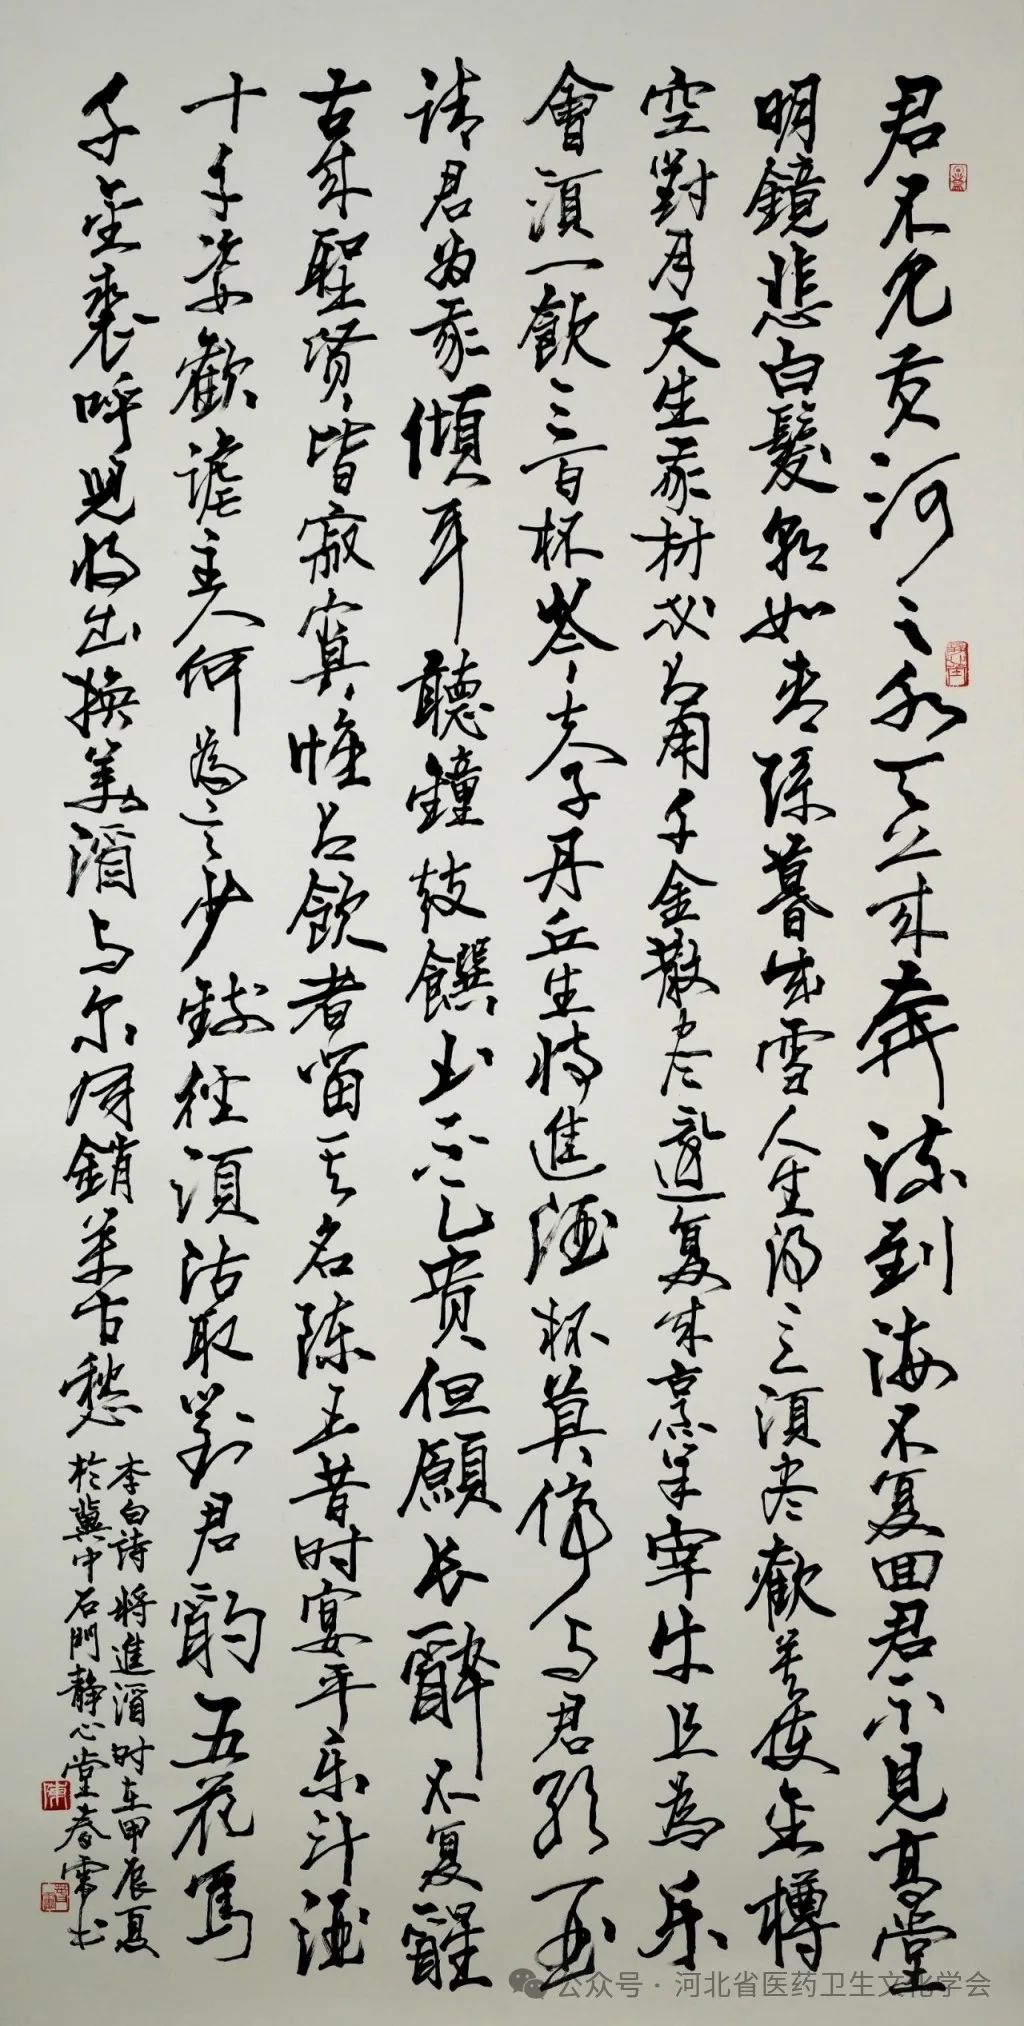 君不見黄河之水天上来奔流到海不复回君不見高堂
明鏡悲白髮朝如青絲暮成雪人生得意須尽歡莫使金樽
空對月天生我材必有用千金散尽還复来烹羊宰牛且為乐
會須一飲三百杯岑夫子丹丘生将進酒杯莫停与君歌一曲
请君为我傾耳聽鐘鼓饌玉不足贵但願长醉不复醒
古来聖贤皆寂寞惟有飲者留其名陈王昔时宴平乐斗酒
十千恣歡謔主人何為言少錢径須沽取對君酌五花馬
千金裘呼児将出换美酒与尔同銷萬古愁
李白詩將進酒时在甲辰夏
於冀中石門静心堂春书
公众号·河北省医药卫生文化学会